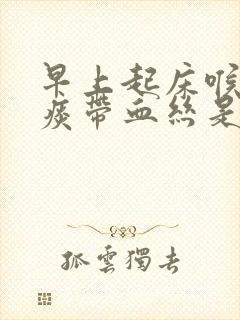 早上起床喉
痰帶血絲是
孤雲獨去